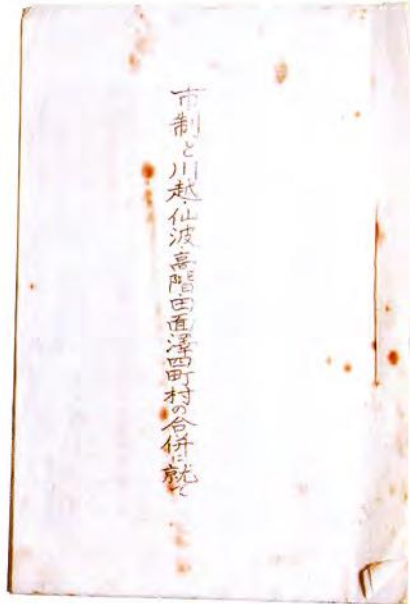 市制と川越・仙波・高階・田面澤四町村の合併に就て